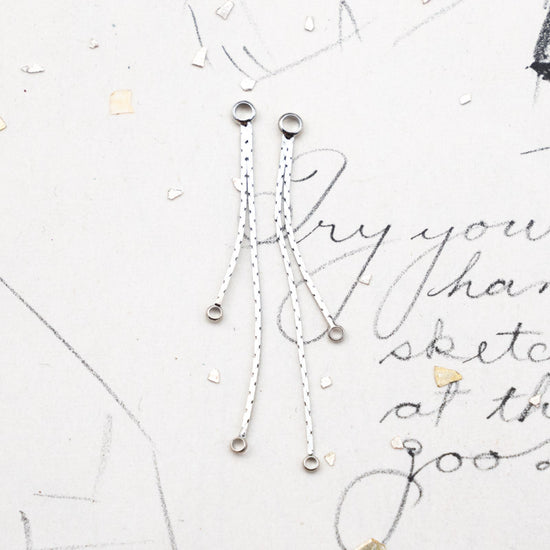 Try you
han
sketc
at th
goo